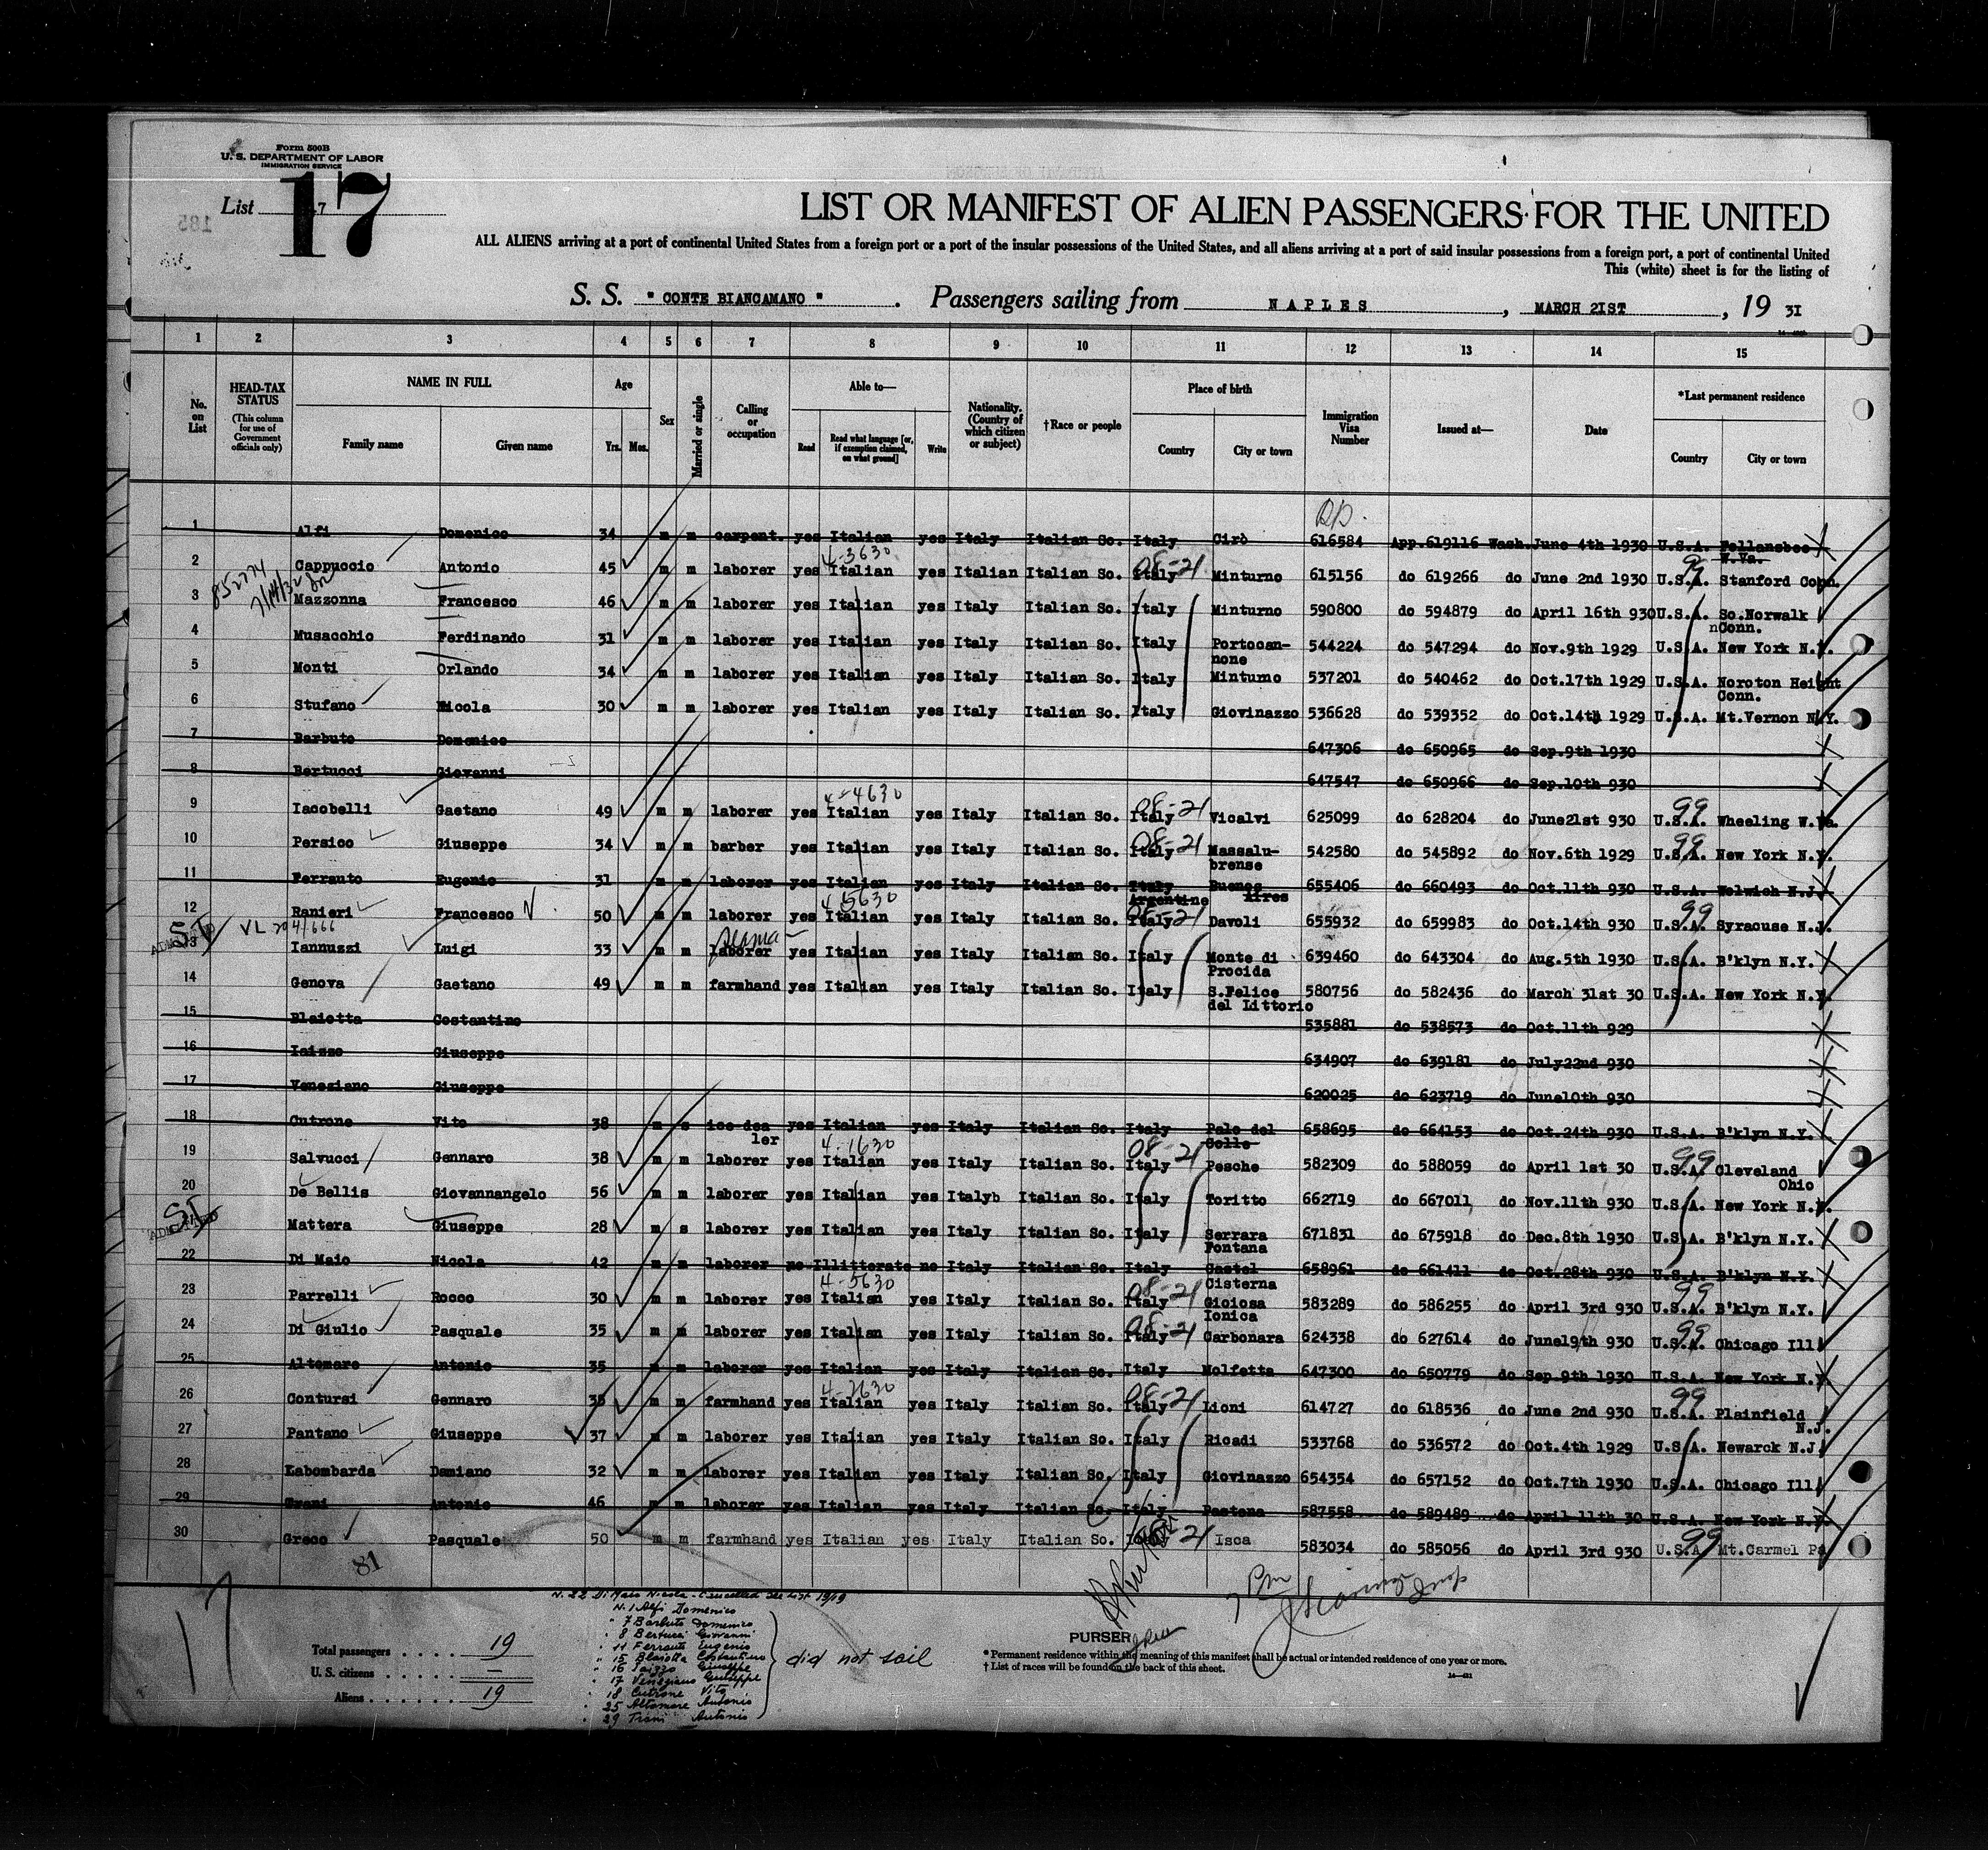 Form 500B
U. S. DEPARTMENT OF LABOR
IMMIGRATION SERVICE
List 17
17
185
LIST OR MANIFEST OF ALIEN PASSENGERS FOR THE UNITED
ALL ALIENS arriving at a port of continental United States from a foreign port or a port of the insular possessions of the United States, and all aliens arriving at a port of said insular possessions from a foreign port, a port of continental United
This (white) sheet is for the listing of
S. S. " CONTE BIANCAMANO " . Passengers sailing from NAPLES , MARCH 21ST , 19 31
1 2 3 4 5 6 7 8 9 10 11 12 13 14 15
No. on List
HEAD-TAX STATUS (This column for use of Government officials only)
NAME IN FULL Family name Given name
Age Yrs. Mos.
Sex
Married or single
Calling or occupation
Able to— Read Read what language [or, if exemption claimed, on what ground] Write
Nationality. (Country of which citizen or subject)
†Race or people
Place of birth Country City or town
Immigration Visa Number
Issued at—
Date
*Last permanent residence Country City or town
1 Alfi Domenico 34 m m carpent. yes Italian yes Italy Italian So. Italy Cirò 616584 App.619116 Wash. June 4th 1930 U.S.A. Follansbee
W.Va.
4-3630 08-21 99
2 Cappuccio Antonio 45 m m laborer yes Italian yes Italian Italian So. Italy Minturno 615156 do 619266 do June 2nd 1930 U.S.A. Stanford Conn.
852774
7/14/32
3 Mazzonna Francesco 46 m m laborer yes Italian yes Italy Italian So. Italy Minturno 590800 do 594879 do April 16th 930 U.S.A. So.Norwalk
Conn.
4 Musacchio Ferdinando 31 m m laborer yes Italian yes Italy Italian So. Italy Portocan- 544224 do 547294 do Nov.9th 1929 U.S.A. New York N.Y.
none
5 Monti Orlando 34 m m laborer yes Italian yes Italy Italian So. Italy Minturno 537201 do 540462 do Oct.17th 1929 U.S.A. Noroton Height
Conn.
6 Stufano Nicola 30 m m laborer yes Italian yes Italy Italian So. Italy Giovinazzo 536628 do 539352 do Oct.14th 1929 U.S.A. Mt.Vernon N.Y.
7 Barbuto Domenico 647306 do 650965 do Sep.9th 1930
8 Bertucci Giovanni 647547 do 650966 do Sep.10th 930
4-4630 08-21 99
9 Iacobelli Gaetano 49 m m laborer yes Italian yes Italy Italian So. Italy Vicalvi 625099 do 628204 do June21st 930 U.S.A. Wheeling W.Va.
08-21 99
10 Persico Giuseppe 34 m m barber yes Italian yes Italy Italian So. Italy Massalu- 542580 do 545892 do Nov.6th 1929 U.S.A. New York N.Y.
brense
11 Ferrauto Eugenio 31 m m laborer yes Italian yes Italy Italian So. Italy Buenos 655406 do 660493 do Oct.11th 930 U.S.A. Wolwich N.J.
Argentine Aires
4-5630 99
12 Ranieri Francesco 50 m m laborer yes Italian yes Italy Italian So. Italy Davoli 655932 do 659983 do Oct.14th 930 U.S.A. Syracuse N.J.
SI ADMITTED VL 204/666
13 Iannuzzi Luigi 33 m m laborer yes Italian yes Italy Italian So. Italy Monte di 639460 do 643304 do Aug.5th 1930 U.S.A. B'klyn N.Y.
Procida
14 Genova Gaetano 49 m m farmhand yes Italian yes Italy Italian So. Italy S.Felice 580756 do 582436 do March 31st 30 U.S.A. New York N.Y.
del Littorio
15 Blaiotta Costantino 535881 do 538573 do Oct.11th 929
16 Iaizzo Giuseppe 634907 do 639181 do July22nd 930
17 Veneziano Giuseppe 620025 do 623719 do June10th 930
18 Cutrone Vito 38 m s ice dea yes Italian yes Italy Italian So. Italy Palo del 658695 do 664153 do Oct.24th 930 U.S.A. B'klyn N.Y.
ler Colle
4-1630 08-21 99
19 Salvucci Gennaro 38 m m laborer yes Italian yes Italy Italian So. Italy Pesche 582309 do 588059 do April 1st 30 U.S.A. Cleveland
Ohio
20 De Bellis Giovannangelo 56 m m laborer yes Italian yes Italyb Italian So. Italy Toritto 662719 do 667011 do Nov.11th 930 U.S.A. New York N.Y.
SI ADMITTED
Mattera Giuseppe 28 m s laborer yes Italian yes Italy Italian So. Italy Serrara 671831 do 675918 do Dec.8th 1930 U.S.A. B'klyn N.Y.
Fontana
22 Di Maio Nicola 42 m m laborer no Illitterate no Italy Italian So. Italy Castel 658961 do 661411 do Oct.28th 930 U.S.A. B'klyn N.Y.
Cisterna
4-5630 08-21 99
23 Parrelli Rocco 30 m m laborer yes Italian yes Italy Italian So. Italy Gioiosa 583289 do 586255 do April 3rd 930 U.S.A. B'klyn N.Y.
Ionica
08-21 99
24 Di Giulio Pasquale 35 m m laborer yes Italian yes Italy Italian So. Italy Carbonara 624338 do 627614 do June19th 930 U.S.A. Chicago Ill
25 Altomare Antonio 35 m m laborer yes Italian yes Italy Italian So. Italy Molfetta 647300 do 650779 do Sep.9th 1930 U.S.A. New York N.Y.
4-2630 08-21 99
26 Contursi Gennaro 35 m m farmhand yes Italian yes Italy Italian So. Italy Lioni 614727 do 618536 do June 2nd 930 U.S.A. Plainfield
N.J.
27 Pantano Giuseppe 37 m m laborer yes Italian yes Italy Italian So. Italy Ricadi 533768 do 536572 do Oct.4th 1929 U.S.A. Newarck N.J
28 Labombarda Damiano 32 m m laborer yes Italian yes Italy Italian So. Italy Giovinazzo 654354 do 657152 do Oct.7th 1930 U.S.A. Chicago Ill
29 Trani Antonio 46 m m laborer yes Italian yes Italy Italian So. Italy Pastena 587558 do 589489 do April 11th 30 U.S.A. New York N.Y.
30 Greco Pasquale 50 m m farmhand yes Italian yes Italy Italian So. Isca 583034 do 585056 do April 3rd 930 U.S.A. Mt.Carmel Pa
81
17
N. 22 Di Maio Nicola - Cancelled see list 19/19
N. 1 Alfi Domenico
" 7 Barbuto Domenico
" 8 Bertucci Giovanni
" 11 Ferrauto Eugenio
" 15 Blaiotta Costantino
" 16 Iaizzo Giuseppe
" 17 Veneziano Giuseppe
" 18 Cutrone Vito
" 25 Altomare Antonio
" 29 Trani Antonio
did not sail
Total passengers . . . . 19
U. S. citizens . . . . . —
Aliens . . . . . . 19
PURSER
* Permanent residence within the meaning of this manifest shall be actual or intended residence of one year or more.
† List of races will be found on the back of this sheet.